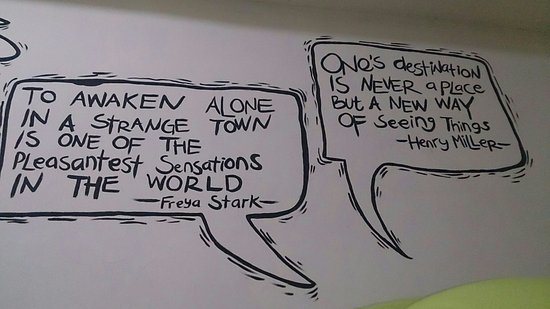 TO AWAKEN ALONE
IN A STRANGE TOWN
IS ONE OF THE
PLeasantest Sensations
IN THE WORLD
—Freya Stark—
ONe's destiNatioN
IS NEVER a PLaCe
But A NEW WAY
OF Seeing Things
—Henry Miller—